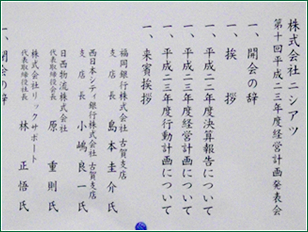 株式会社ニシアツ
第十回平成二三年度経営計画発表会
一、開会の辞
一、挨拶
一、平成二二年度決算報告について
一、平成二三年度経営計画について
一、平成二三年度行動計画について
一、来賓挨拶
福岡銀行株式会社 古賀支店
支店長 島本圭介氏
西日本シティ銀行株式会社 古賀支店
支店長 小嶋良一氏
日西物流株式会社
代表取締役会長 原重則氏
株式会社リックサポート
代表取締役社長 林正悟氏
一、閉会の辞